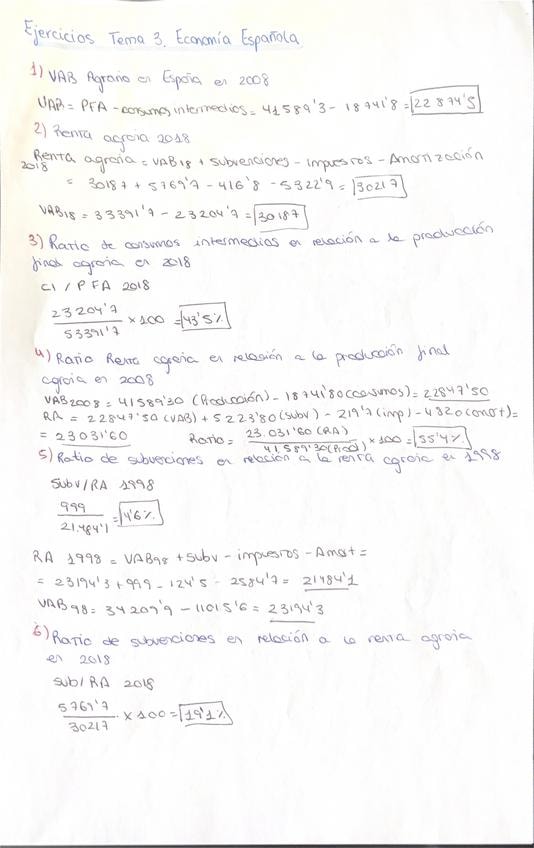 Ejercicios Tema 3. Economía Española
1) VAB Agrario en España en 2008
VAB = PFA - consumos intermedios = 41589'3 - 18741'8 = 22874'5
2) Renta agraria 2018
Renta agraria 2018 = VAB18 + subvenciones - impuestos - Amortización
= 30187 + 5769'7 - 416'8 - 5322'9 = 30217
VAB18 = 33391'7 - 23204'7 = 30187
3) Ratio de consumos intermedios en relación a la producción
final agraria en 2018
CI / PFA 2018
23204'7 / 53391'7 × 100 = 43'5%
4) Ratio Renta agraria en relación a la producción final
agraria en 2008
VAB2008 = 41589'30 (Producción) - 18741'80 (consumos) = 22847'50
RA = 22847'50 (VAB) + 5223'80 (subv) - 219'7 (imp) - 4820 (amort) =
= 23031'60 Ratio = 23.031'60 (RA) / 41.589'30 (Prod) × 100 = 55'4%
5) Ratio de subvenciones en relación a la renta agraria en 1998
Subv/RA 1998
999 / 21.484'1 = 4'6%
RA 1998 = VAB98 + subv - impuestos - Amort =
= 23194'3 + 999 - 124'5 - 2584'7 = 21484'1
VAB98 = 34209'9 - 11015'6 = 23194'3
6) Ratio de subvenciones en relación a la renta agraria
en 2018
Sub/RA 2018
5769'7 / 30217 × 100 = 19'1%